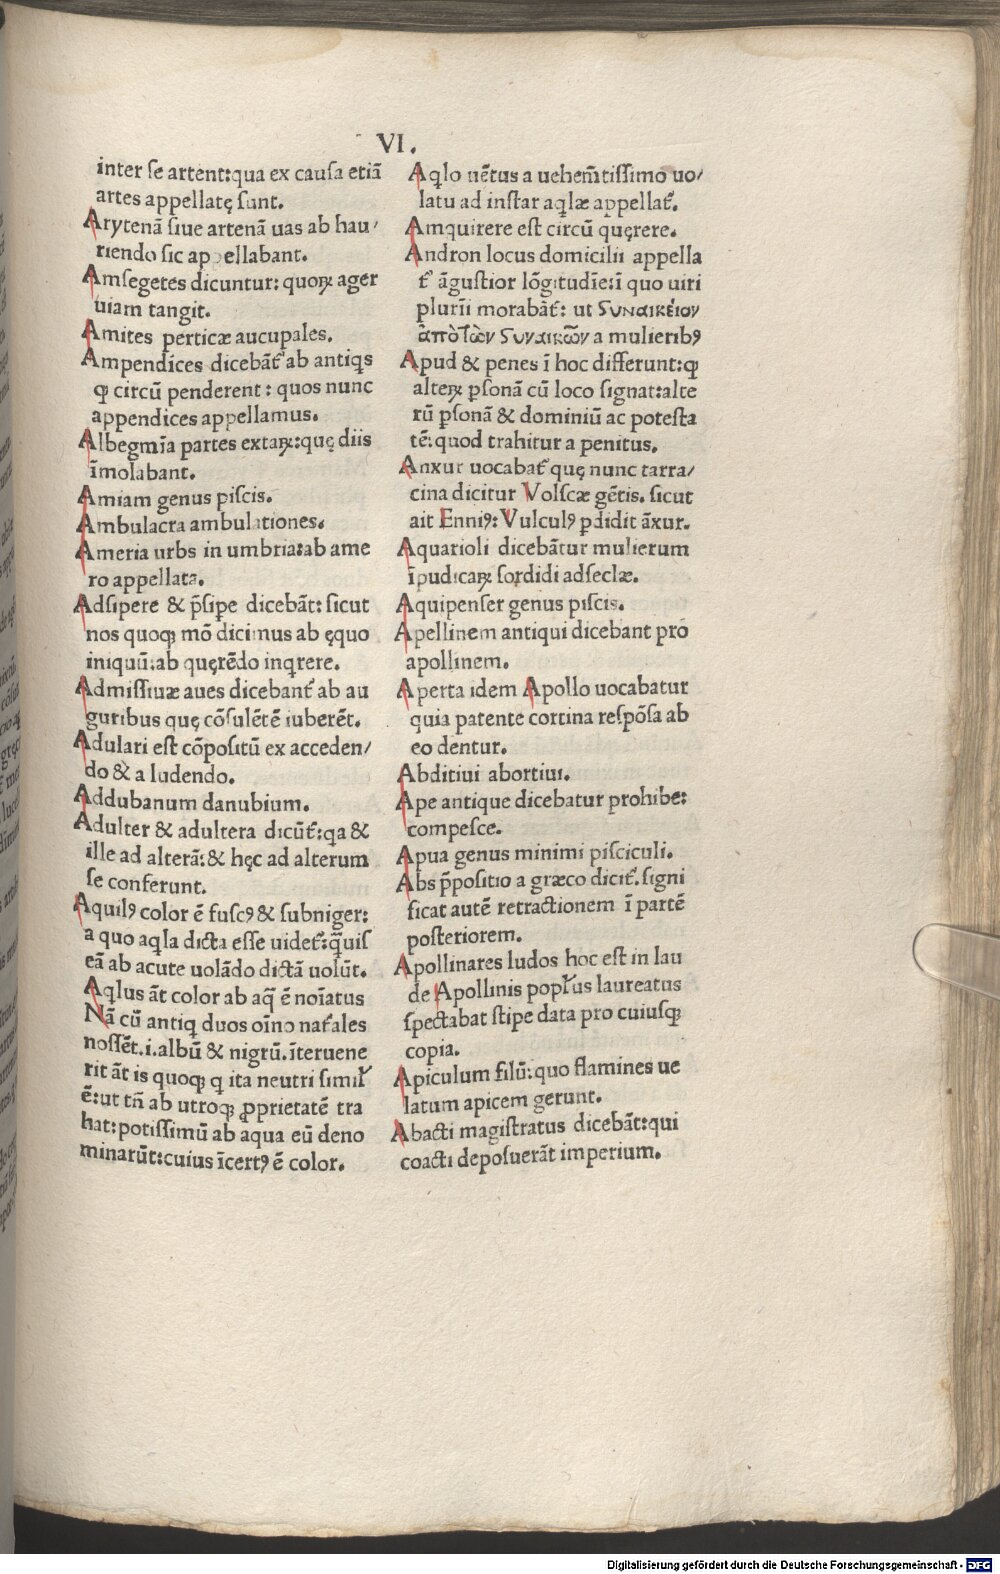 VI.
inter se artent:qua ex causa etiā
artes appellatę sunt.
Arytenā siue artenā uas ab hau/
riendo sic appellabant.
Amsegetes dicuntur: quoꝝ ager
uiam tangit.
Amites perticæ aucupales.
Ampendices dicebāt᷑ ab antiqs
ꝙ circū penderent: quos nunc
appendices appellamus.
Albegmīa partes extaꝝ:quę diis
īmolabant.
Amiam genus piscis.
Ambulacra ambulationes.
Ameria urbs in umbria:ab ame
ro appellata.
Adsipere & p̄sipe dicebāt: sicut
nos quoqꝫ mō dicimus ab ęquo
iniquū:ab querēdo inqrere.
Admissiuæ aues dicebant᷑ ab au
guribus quę cōsulētē iuberēt.
Adulari est cōpositū ex acceden/
do & a ludendo.
Addubanum danubium.
Adulter & adultera dicūt᷑:qa &
ille ad alterā:& hęc ad alterum
se conferunt.
Aquilꝰ color ē fuscꝰ & subniger:
a quo aqla dicta esse uidet᷑:qāuis
eā ab acute uolādo dictā uolūt.
Aqlus āt color ab aq̄ ē noīatus
Nā cū antiq duos oīno nat᷑ales
nossēt.i.albū & nigrū.īteruene
rit āt is quoqꝫ q ita neutri simil᷑
ē:ut tn̄ ab utroqꝫ ꝓprietatē tra
hat:potissimū ab aqua eū deno
minarūt:cuius īcertꝰ ē color.
Aqlo uētus a uehem̄tissimo uo/
latu ad instar aqlæ appellat᷑.
Amquirere est circū quęrere.
Andron locus domicilii appella
t᷑ āgustior lōgitudīe:ī quo uiri
plurīi morabāt᷑: ut Συναικείον
ἀπὸ τῶν Συναικῶν a mulieribꝰ
Apud & penes ī hoc differunt:ꝙ
alteꝝ ꝑsonā cū loco signat:alte
rū ꝑsonā & dominiū ac potesta
tē:quod trahitur a penitus.
Anxur uocabat᷑ quę nunc tarra/
cina dicitur Volscæ gētis. sicut
ait Enniꝰ: Vulculꝰ ꝑdidit āxur.
Aquarioli dicebātur mulierum
īpudicaꝝ sordidi adseclæ.
Aquipenser genus piscis.
Apellinem antiqui dicebant pro
apollinem.
Aperta idem Apollo uocabatur
quia patente cortina respōsa ab
eo dentur.
Abditiui abortiui.
Ape antique dicebatur prohibe:
compesce.
Apua genus minimi pisciculi.
Abs p̄positio a græco dicit᷑. signi
ficat autē retractionem ī partē
posteriorem.
Apollinares ludos hoc est in lau
de Apollinis popl᷑us laureatus
spectabat stipe data pro cuiusqꝫ
copia.
Apiculum filū:quo flamines ue
latum apicem gerunt.
Abacti magistratus dicebāt:qui
coacti deposuerāt imperium.
Digitalisierung gefördert durch die Deutsche Forschungsgemeinschaft - DFG